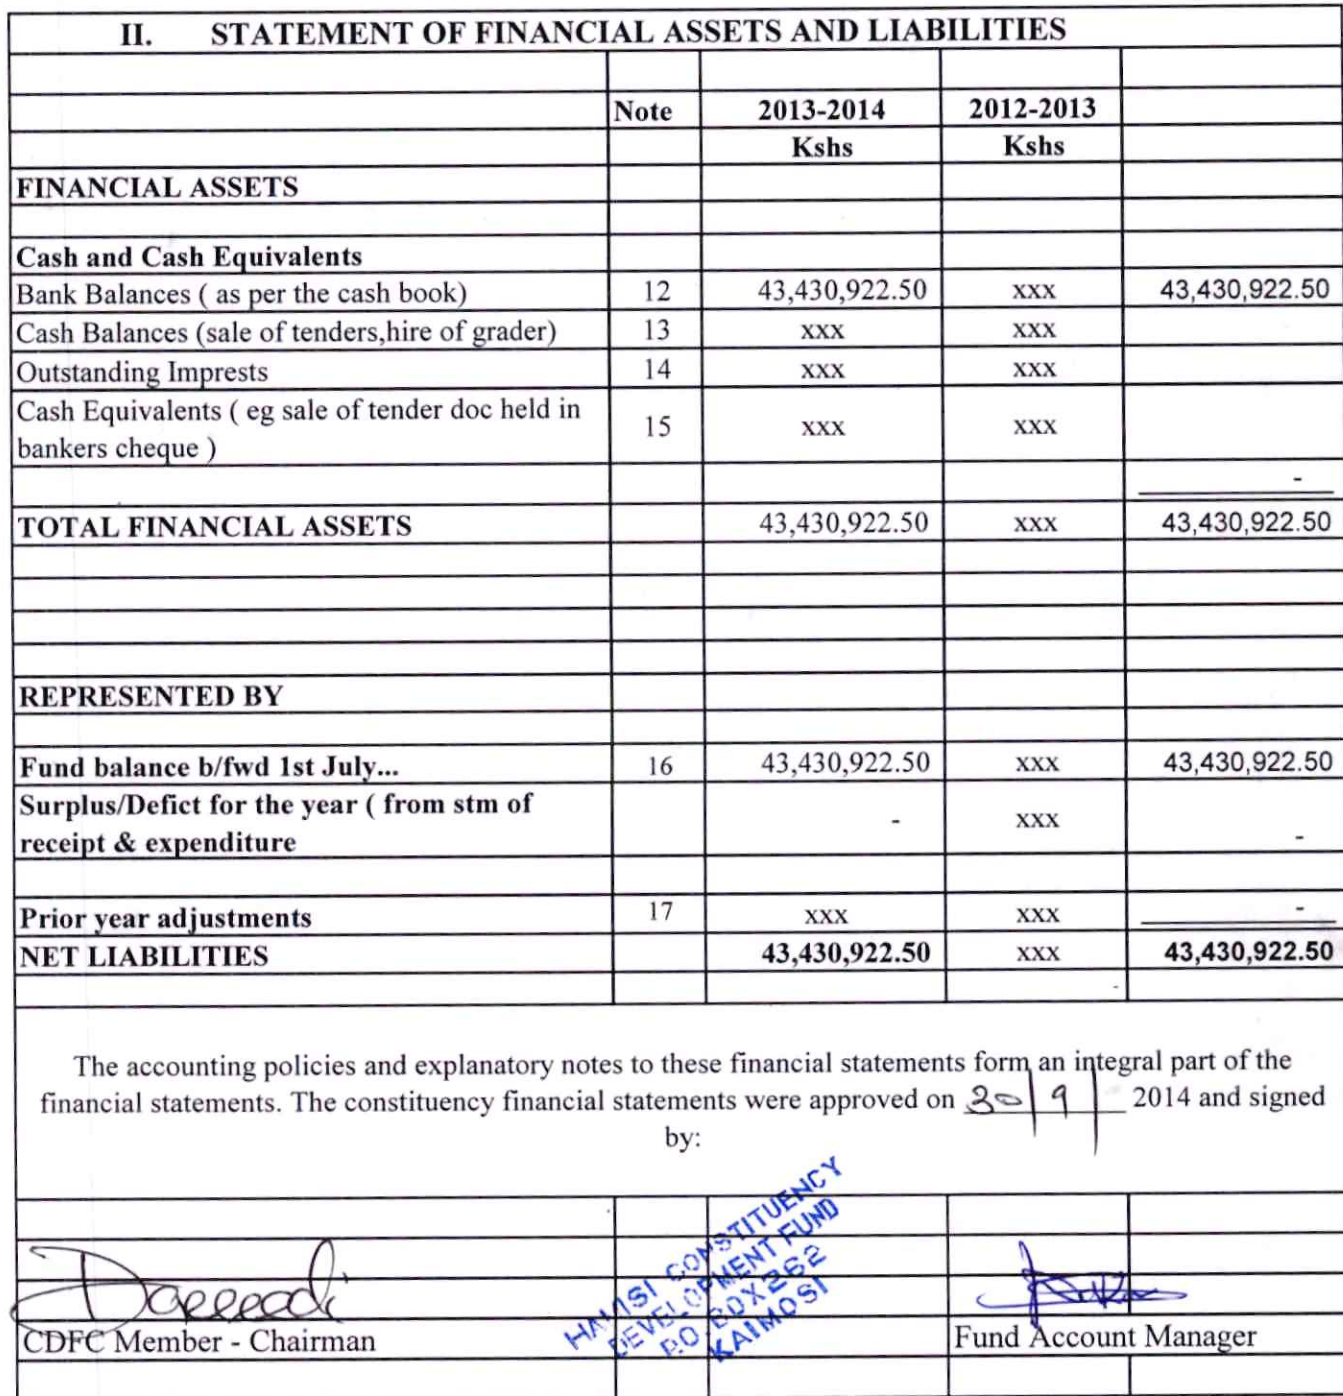 II. STATEMENT OF FINANCIAL ASSETS AND LIABILITIES
Note 2013-2014 2012-2013
Kshs Kshs
FINANCIAL ASSETS
Cash and Cash Equivalents
Bank Balances ( as per the cash book) 12 43,430,922.50 xxx 43,430,922.50
Cash Balances (sale of tenders,hire of grader) 13 xxx xxx
Outstanding Imprests 14 xxx xxx
Cash Equivalents ( eg sale of tender doc held in
bankers cheque ) 15 xxx xxx
-
TOTAL FINANCIAL ASSETS 43,430,922.50 xxx 43,430,922.50
REPRESENTED BY
Fund balance b/fwd 1st July... 16 43,430,922.50 xxx 43,430,922.50
Surplus/Defict for the year ( from stm of
receipt & expenditure - xxx -
Prior year adjustments 17 xxx xxx -
NET LIABILITIES 43,430,922.50 xxx 43,430,922.50
The accounting policies and explanatory notes to these financial statements form an integral part of the
financial statements. The constituency financial statements were approved on 30/9/ 2014 and signed
by:
HAMISI CONSTITUENCY
DEVELOPMENT FUND
P.O BOX 262
KAIMOSI
CDFC Member - Chairman Fund Account Manager